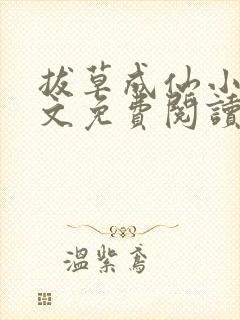 拔草成仙小
文免費閱讀
溫紫鳶